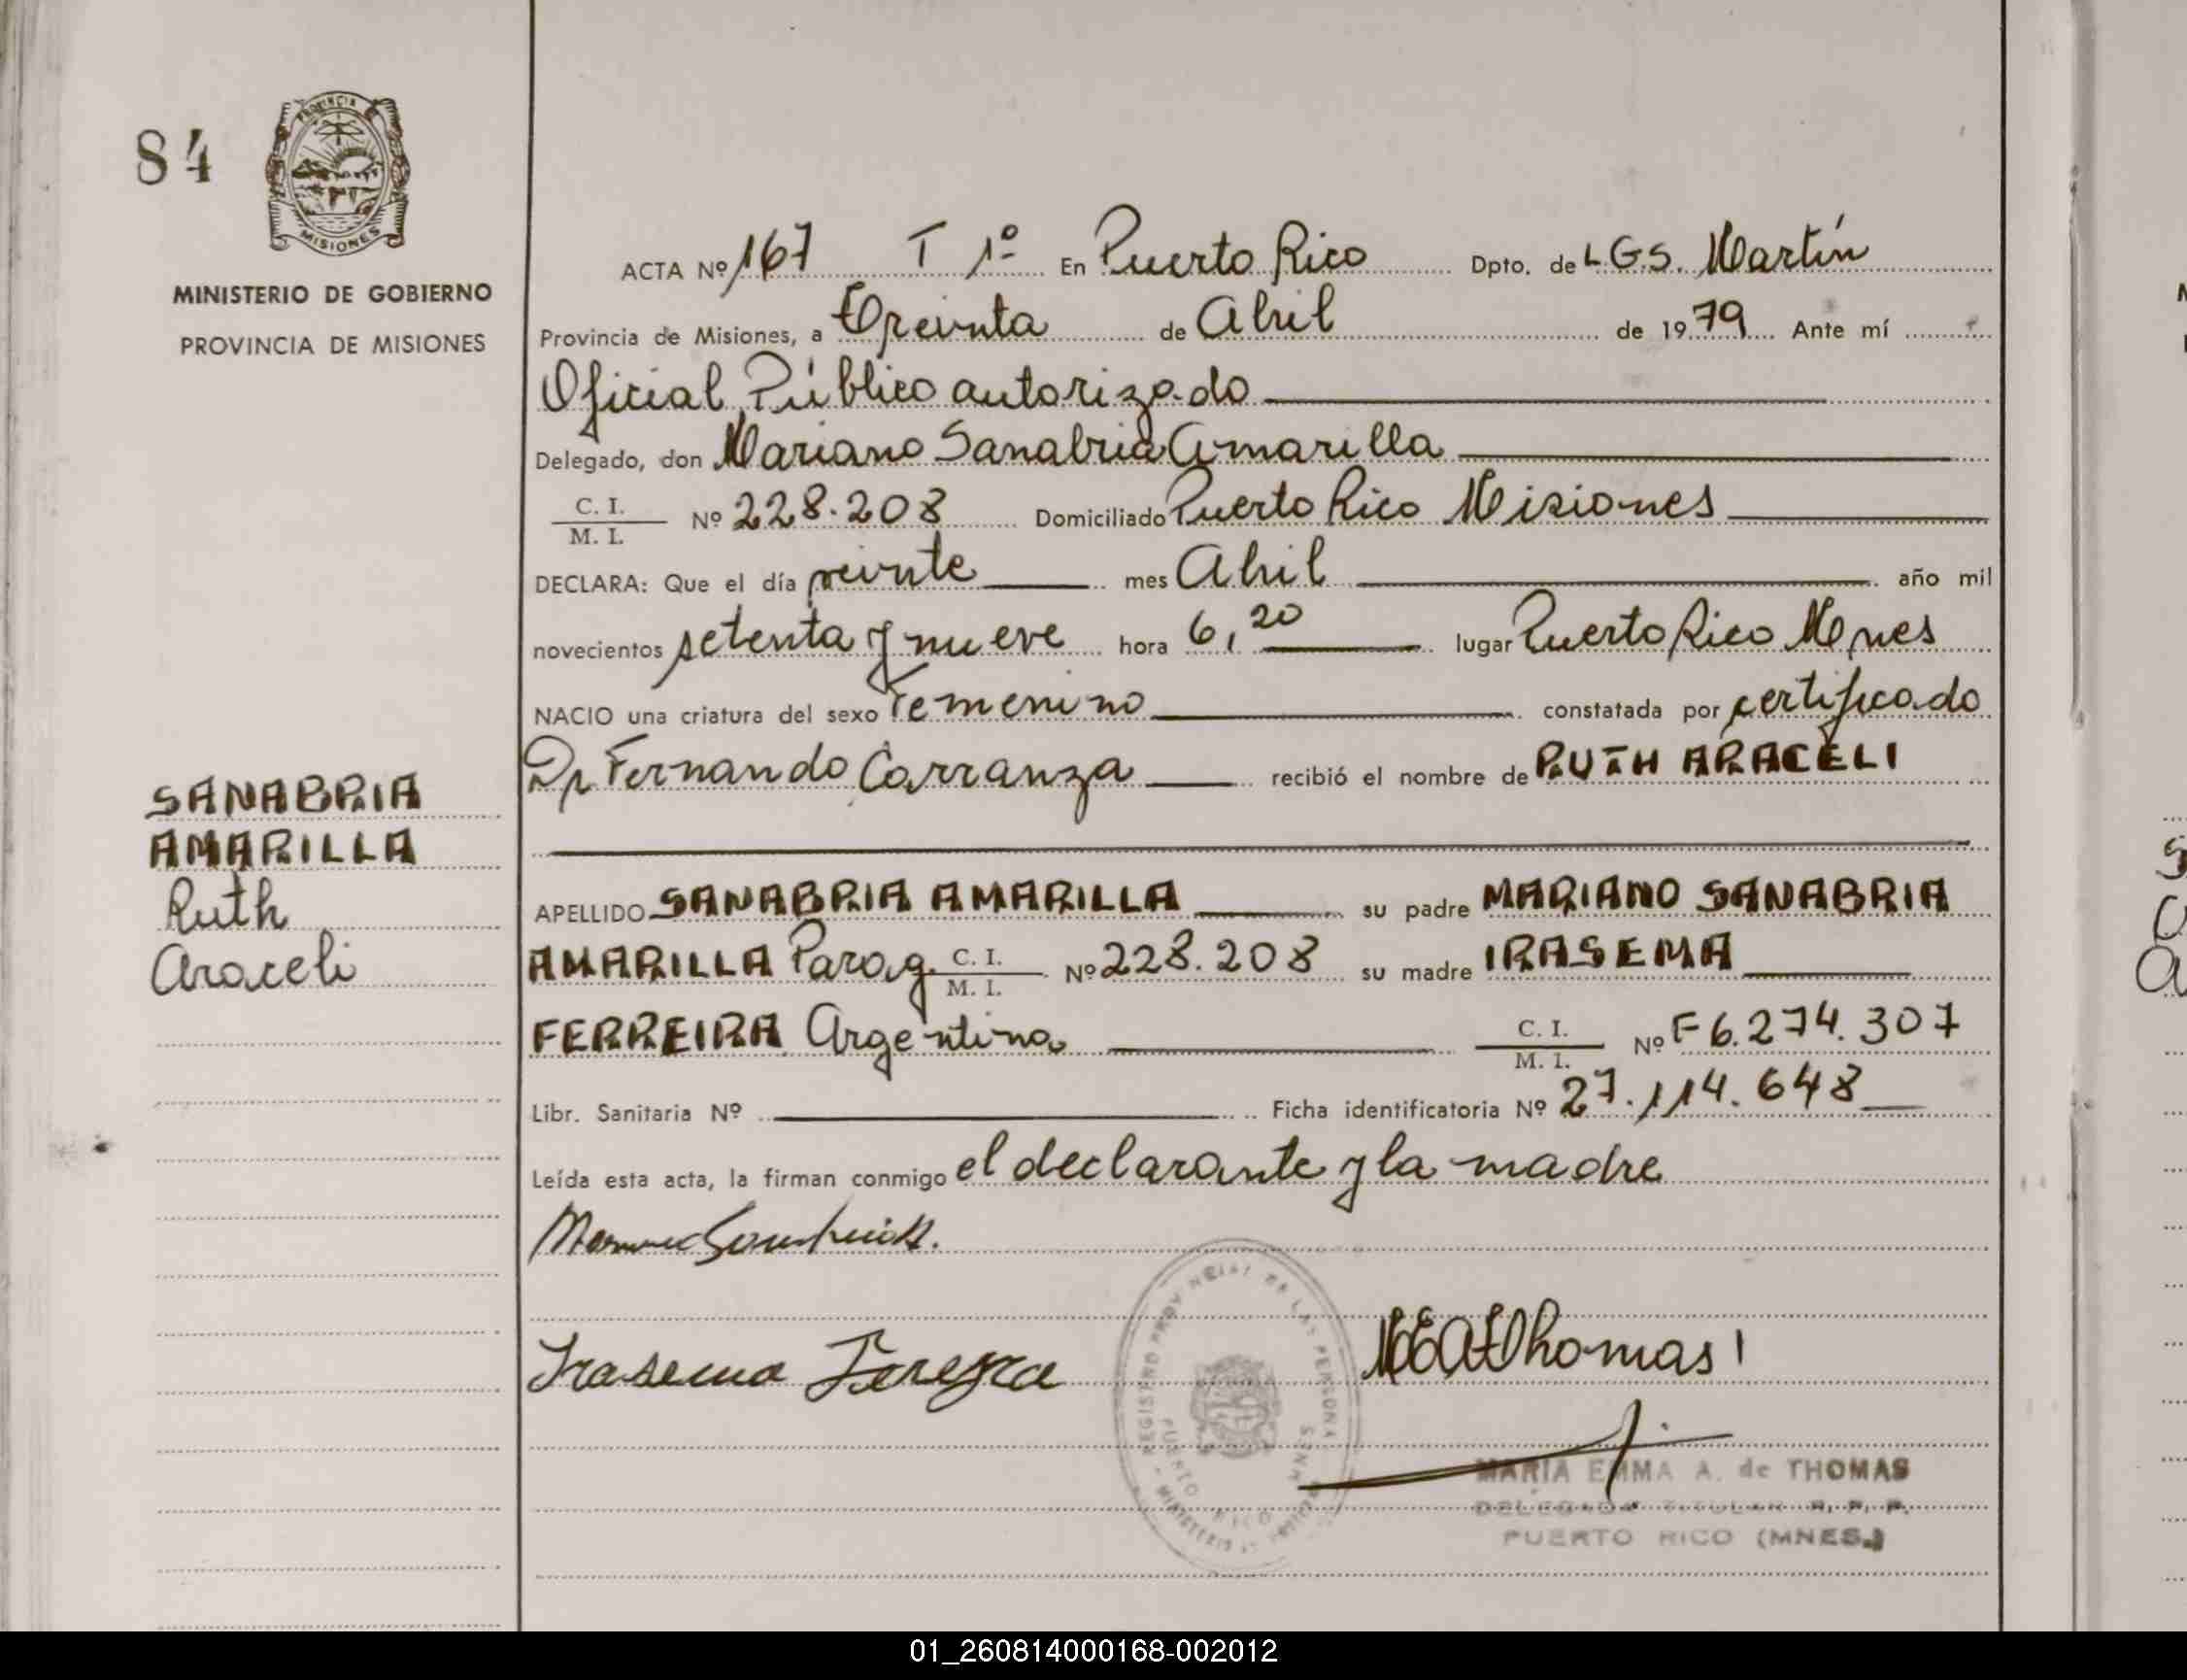 84
PROVINCIA
MISIONES
MINISTERIO DE GOBIERNO
PROVINCIA DE MISIONES
SANABRIA
AMARILLA
Ruth
Araceli
ACTA Nº 167 T 1º En Puerto Rico Dpto. de L.G.S. Martín
Provincia de Misiones, a treinta de Abril de 1979 Ante mí
Oficial Público autorizado
Delegado, don Mariano Sanabria Amarilla
C. I.
M. I. Nº 228.208 Domiciliado Puerto Rico Misiones
DECLARA: Que el día veinte mes Abril año mil
novecientos setenta y nueve hora 6,20 lugar Puerto Rico Mnes
NACIO una criatura del sexo Femenino constatada por certificado
Dr Fernando Carranza recibió el nombre de RUTH ARACELI
APELLIDO SANABRIA AMARILLA su padre MARIANO SANABRIA
AMARILLA Parag. C. I. M. I. Nº 228.208 su madre IRASEMA
FERREIRA Argentina C. I. M. I. Nº F6.274.307
Libr. Sanitaria Nº Ficha identificatoria Nº 27.114.648
Leída esta acta, la firman conmigo el declarante y la madre
REGISTRO PROVINCIAL DE LAS PERSONAS
PUERTO RICO MNES
Irasema
Thomas
MARIA EMMA A. de THOMAS
DELEGADA TITULAR R. P. P.
PUERTO RICO (MNES.)
01_260814000168-002012